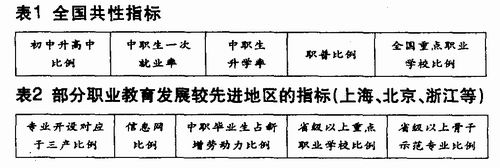 表1 全国共性指标
初中升高中 中职生一次 中职生 职普比例 全国重点职业
比例 就业率 升学率 学校比例
表2 部分职业教育发展较先进地区的指标(上海、北京、浙江等)
专业开设对应 信息网 中职毕业生占新 省级以上重点 省级以上骨干
于三产比例 比例 增劳动力比例 职业学校比例 示范专业比例